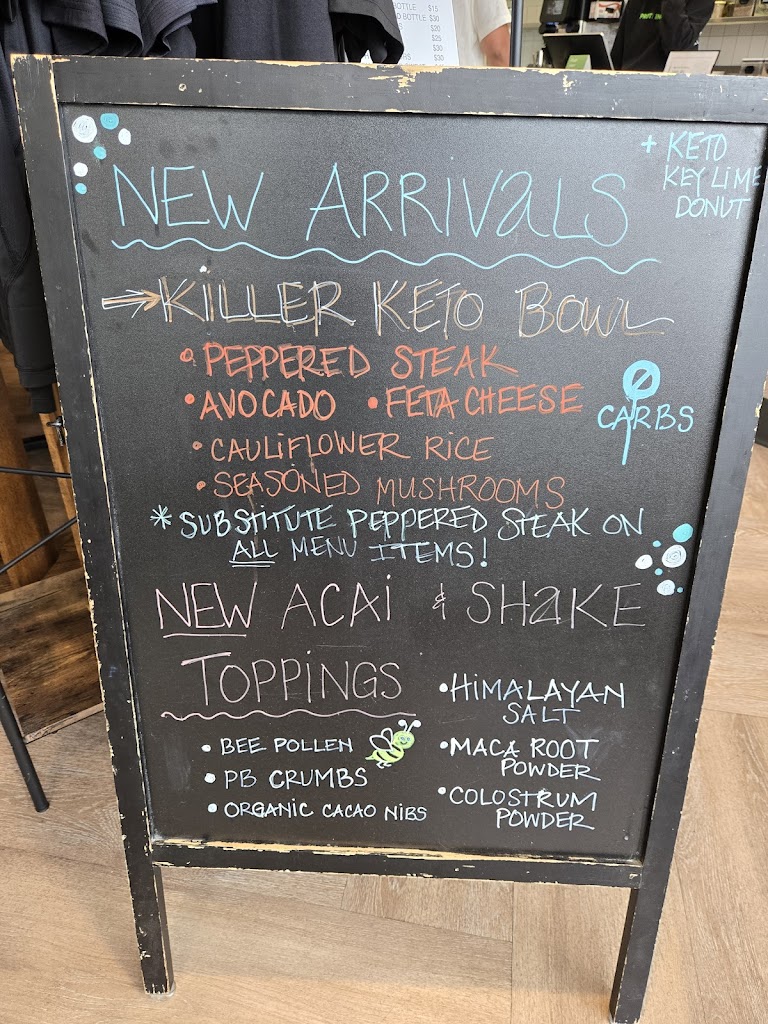 BOTTLE $15
BOTTLE $30
$20
$25
$30
$30
+ KETO
KEY LIME
DONUT
NEW ARRIVALS
KILLER KETO BOWL
• PEPPERED STEAK
• AVOCADO • FETA CHEESE
• CAULIFLOWER RICE
• SEASONED MUSHROOMS
CARBS
* SUBSTITUTE PEPPERED STEAK ON
ALL MENU ITEMS!
NEW ACAI & SHAKE
TOPPINGS
• BEE POLLEN
• PB CRUMBS
• ORGANIC CACAO NIBS
• HIMALAYAN
SALT
• MACA ROOT
POWDER
• COLOSTRUM
POWDER